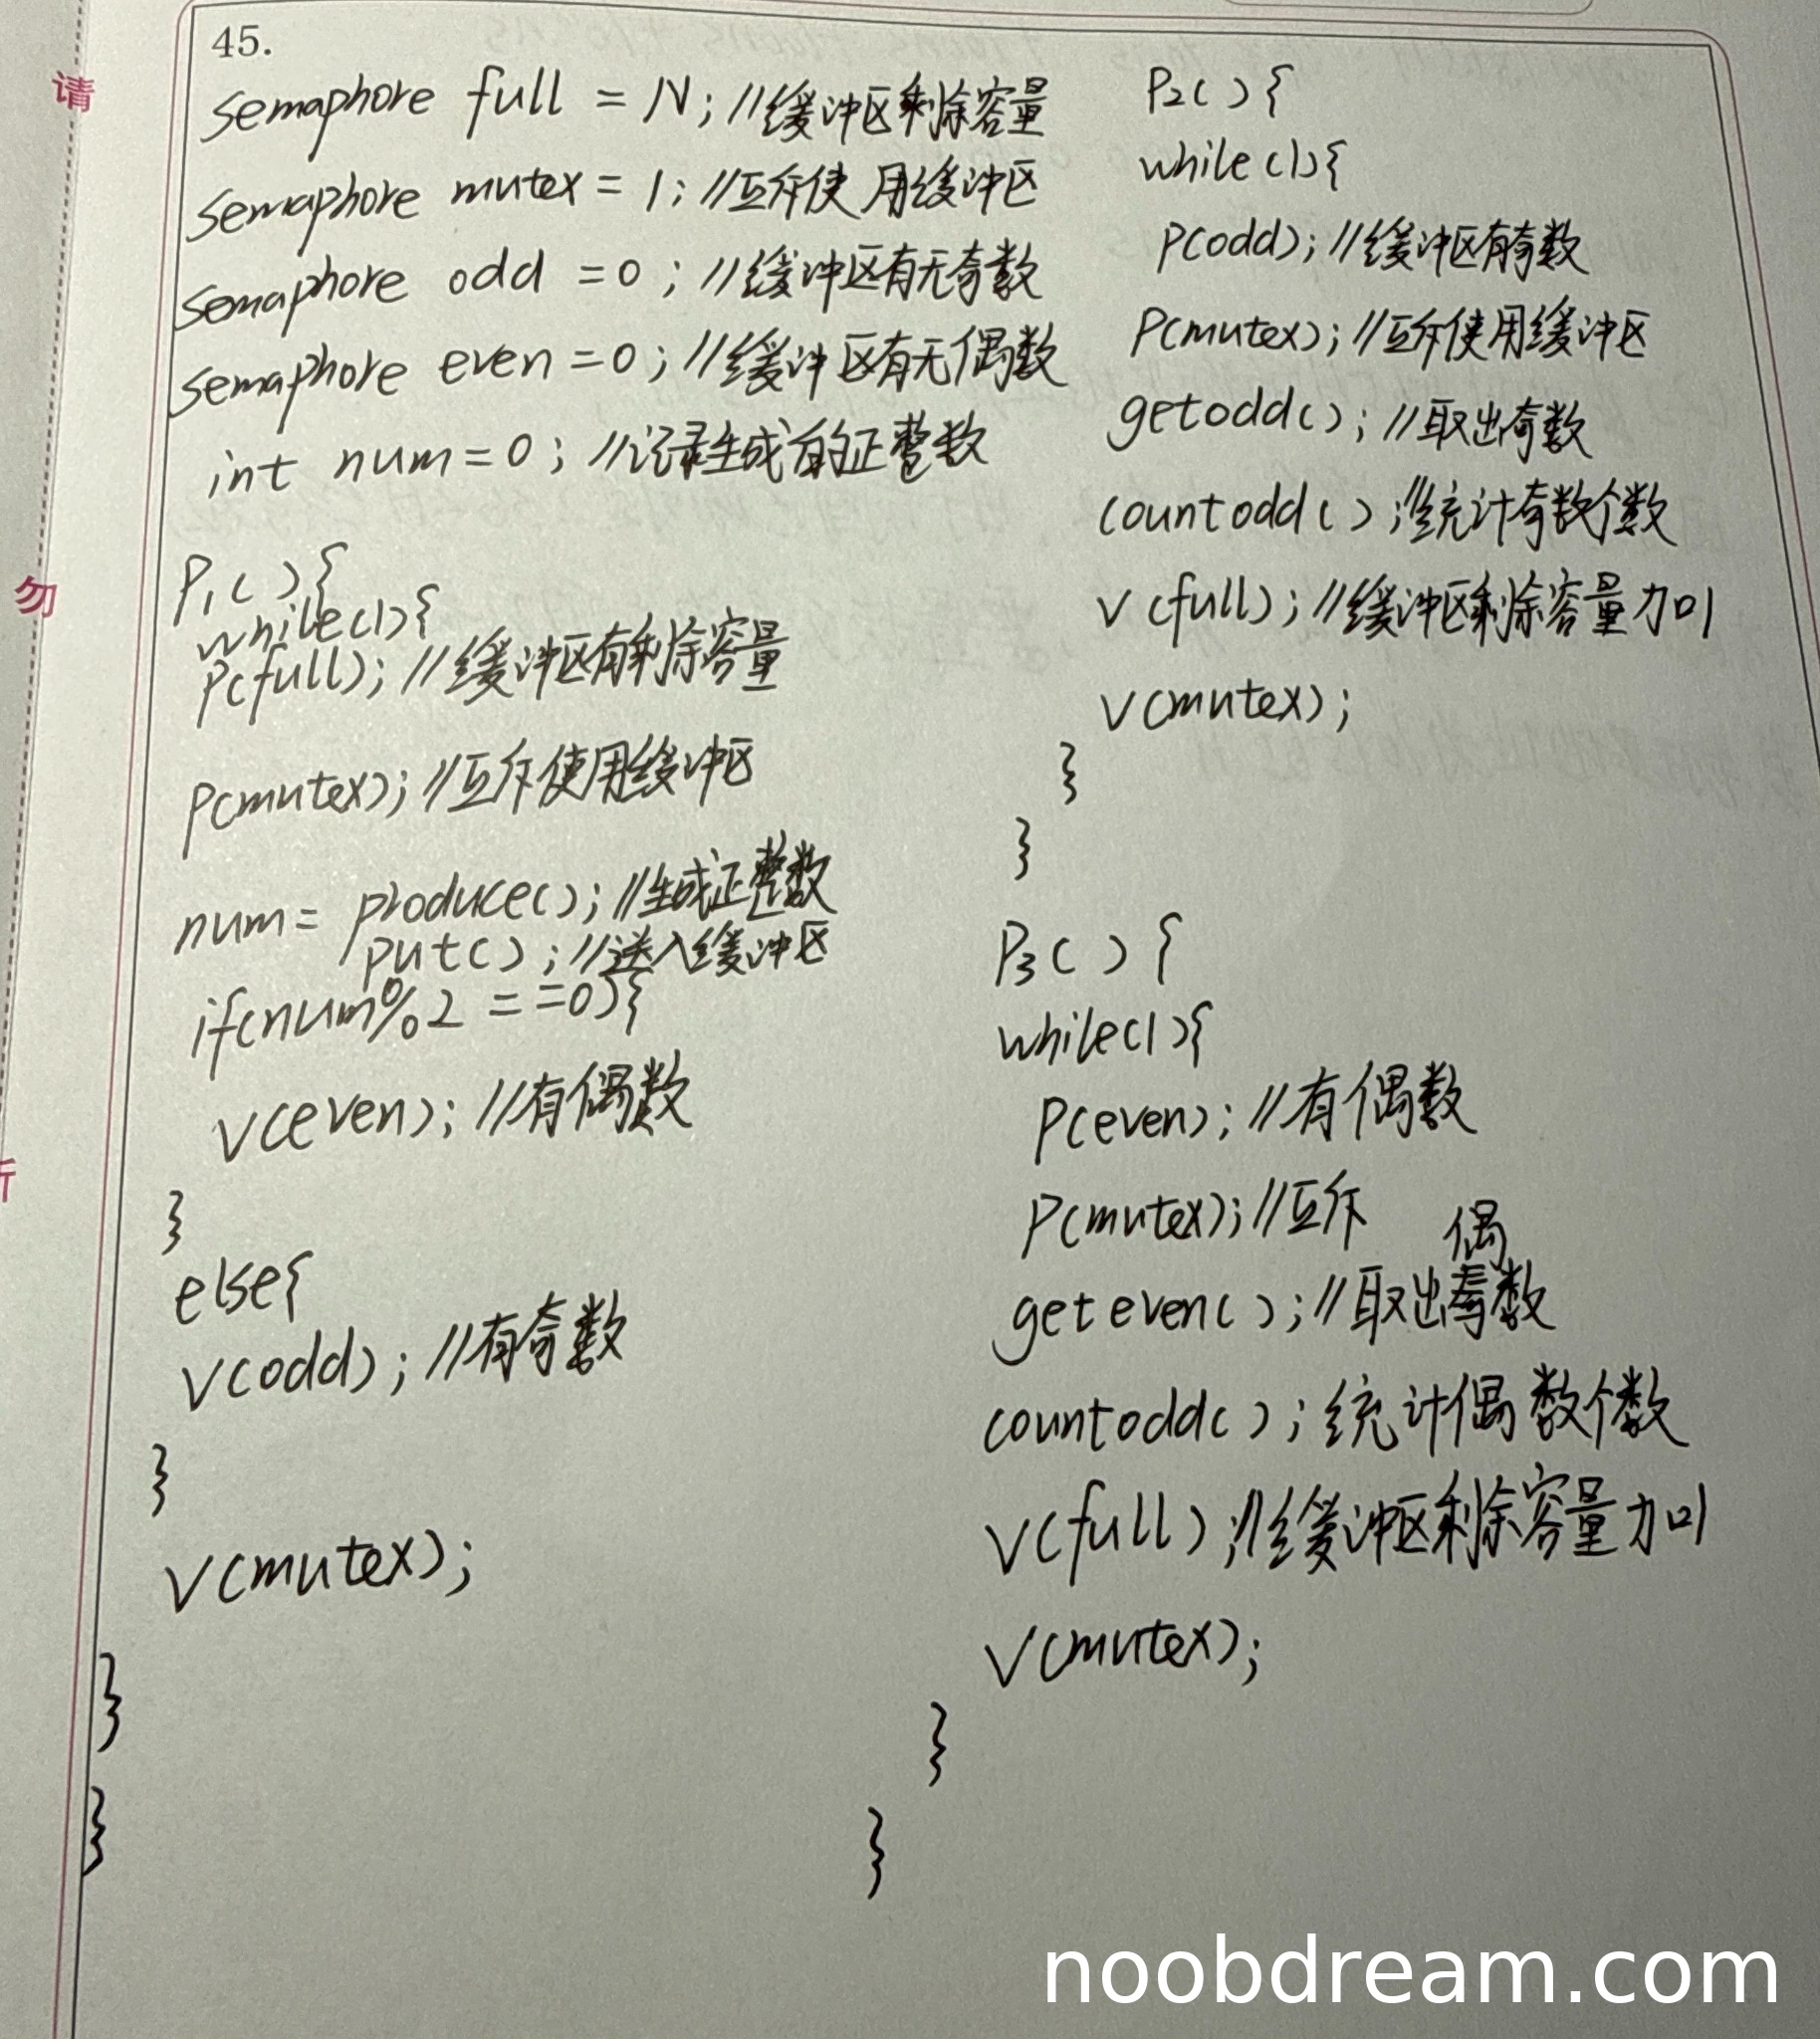 45.
semaphore full = N; //缓冲区剩除容量
semaphore mutex = 1; //互斥使用缓冲区
semaphore odd = 0; //缓冲区有无奇数
semaphore even = 0; //缓冲区有无偶数
int num = 0; //记录生成的正整数
P1( ){
while(1){
P(full); //缓冲区有剩除容量
P(mutex); //互斥使用缓冲区
num = produce(); //生成正整数
put(); //送入缓冲区
if(num%2 ==0){
V(even); //有偶数
}
else{
V(odd); //有奇数
}
V(mutex);
}
}
P2( ){
while(1){
P(odd); //缓冲区有奇数
P(mutex); //互斥使用缓冲区
getodd(); //取出奇数
countodd( ); //统计奇数个数
V(full); //缓冲区剩除容量加1
V(mutex);
}
}
P3( ){
while(1){
P(even); //有偶数
P(mutex); //互斥
geteven( ); //取出偶数
countodd( ); 统计偶数个数
V(full); //缓冲区剩除容量加1
V(mutex);
}
}
请
勿
noobdream.com